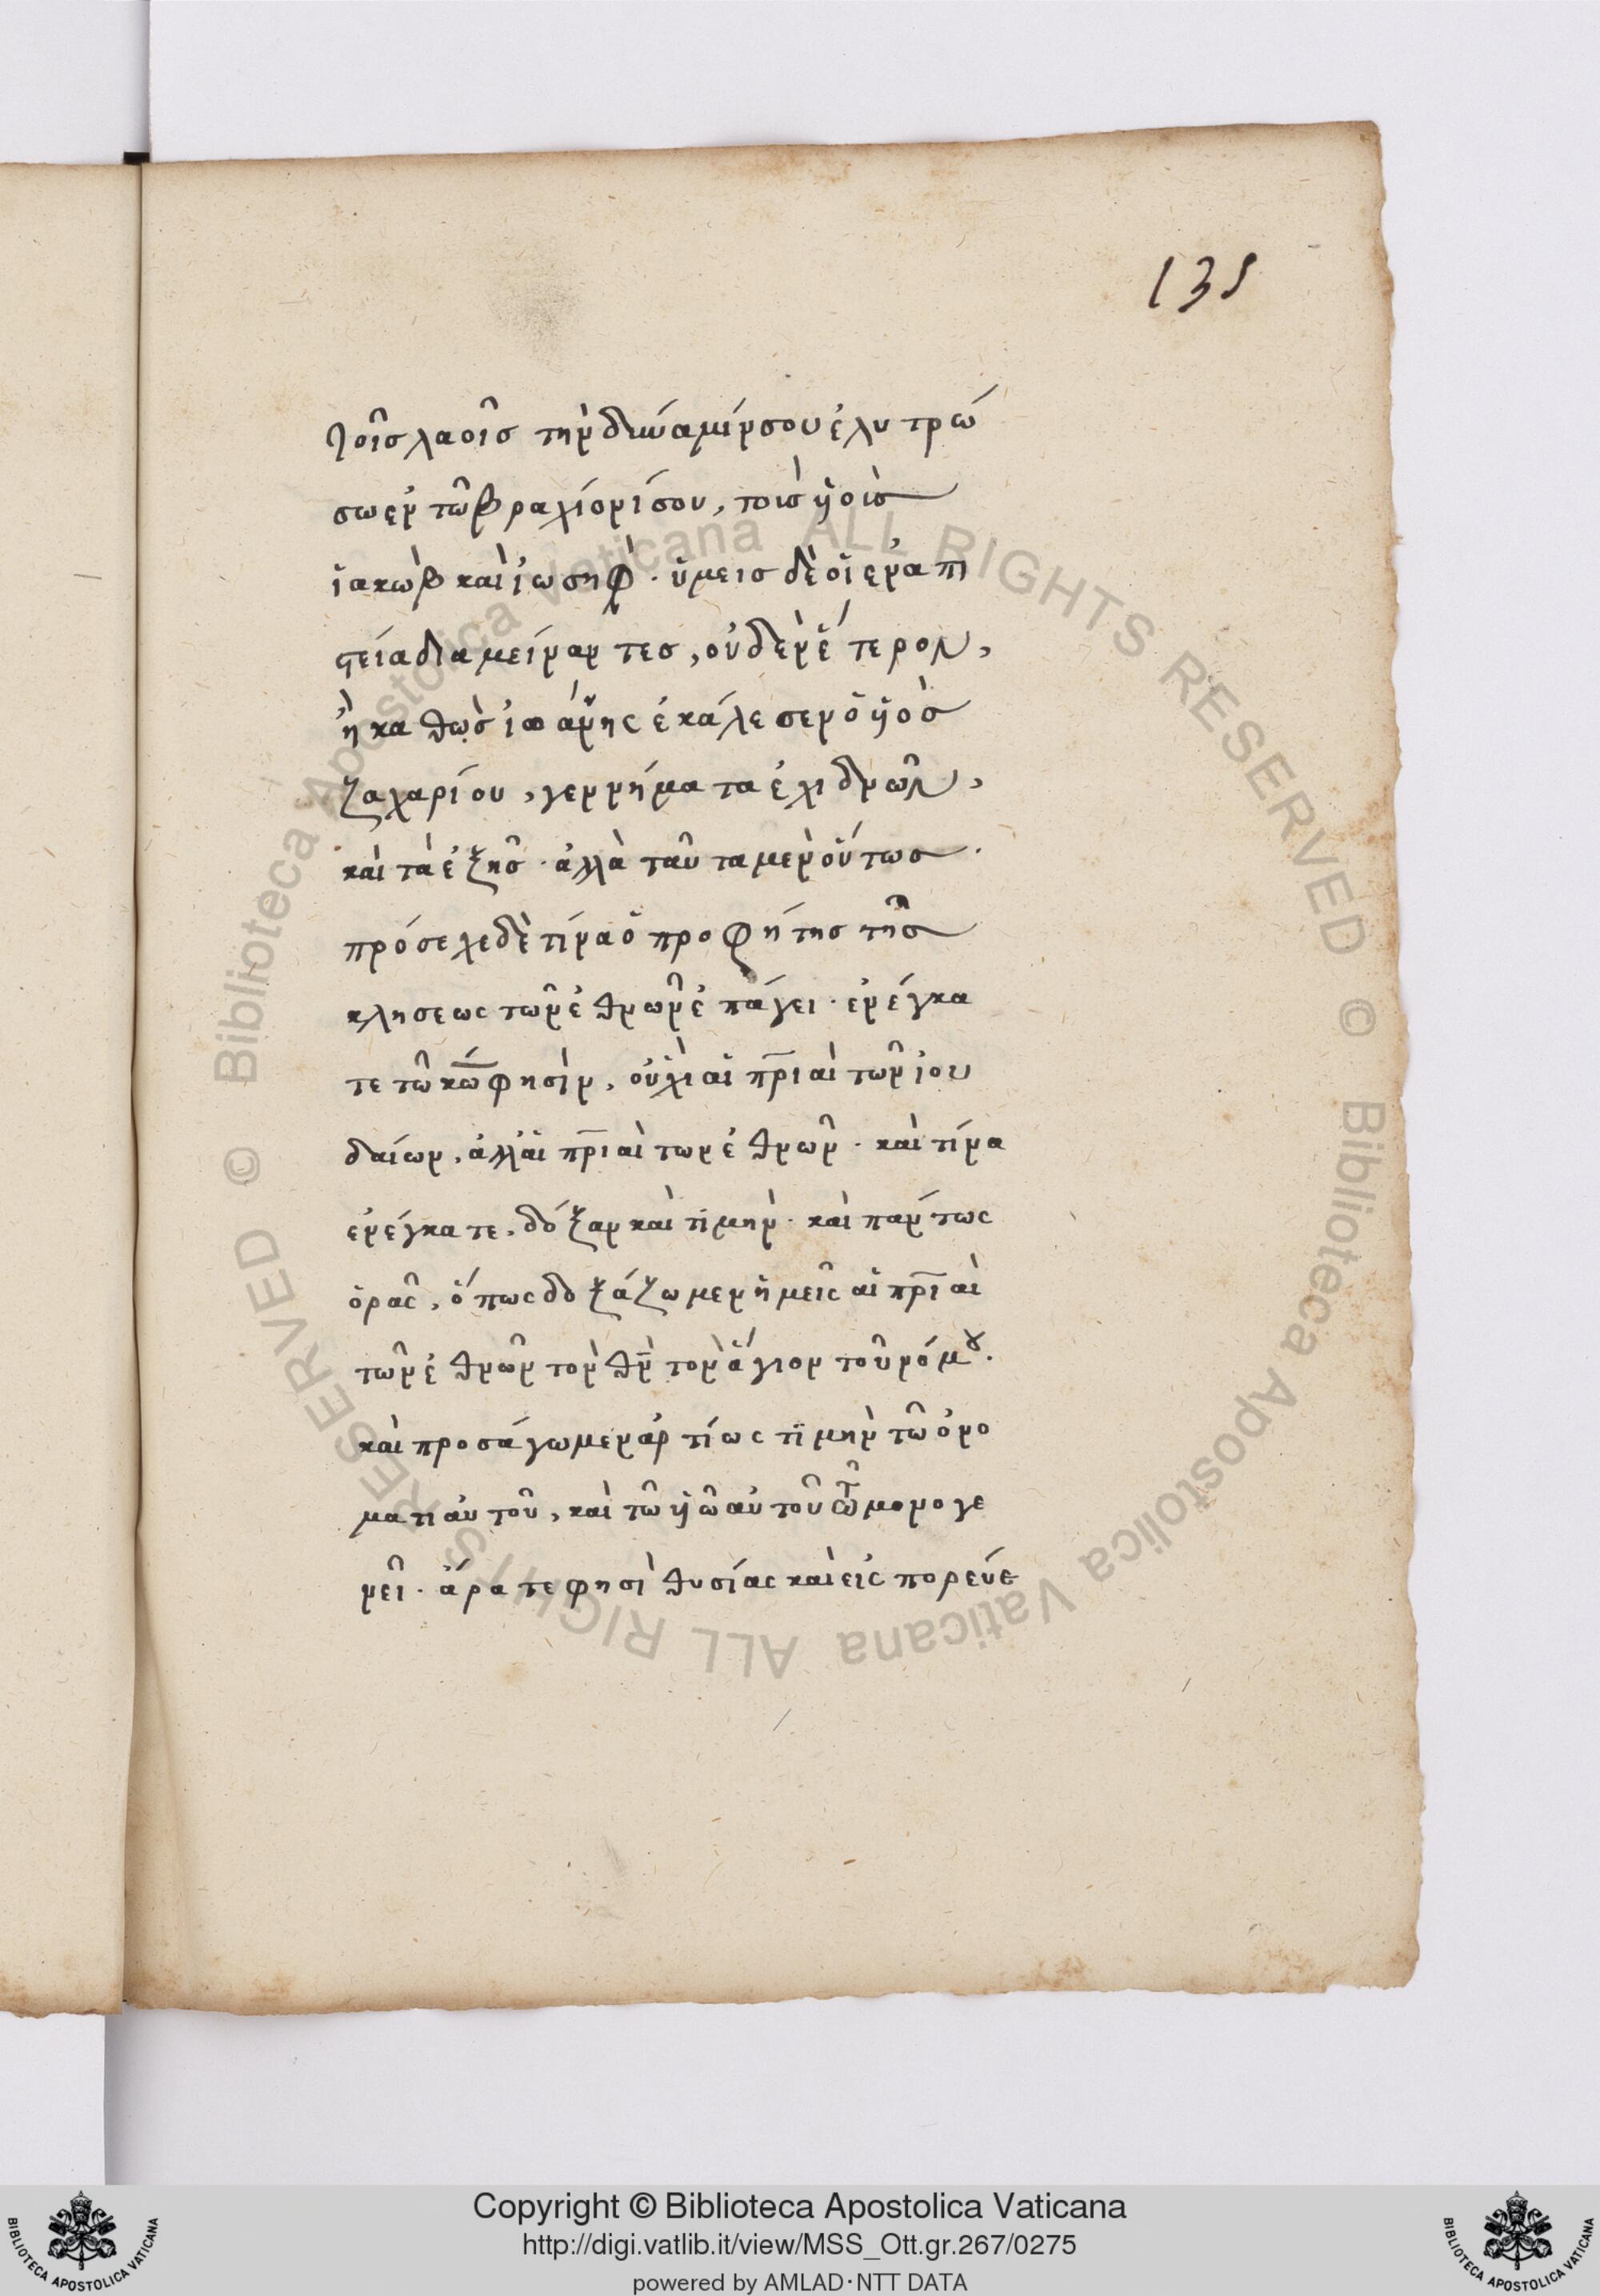 135
τοῖσ λαοῖσ τὴν δύναμίν σου ἐλυτρώ
σω ἐν τῶ βραχίονί σου, τοὺσ ϋἱοὺσ
ἰακὼβ καὶ ἰωσὴφ. ὑμεισ δὲ οἱ ἐν ἀπι
στεία διαμείναντεσ, οὐδὲν ἕτερον,
ἢ καθὼσ ἰωάννης ἐκάλεσεν ὁ ϋἱὸσ
ζαχαρίου, γεννήματα ἐχιδνῶν,
καὶ τὰ ἑξῆσ. ἀλλὰ ταῦτα μὲν οὕτωσ.
πρόσεχε δὲ τίνα ὁ προφήτησ τῆσ
κλήσεως τῶν ἐθνῶν ἐπάγει. ἐνέγκα
τε τῶ κω φησὶν, οὐχὶ αἱ πριαὶ τῶν ἰου
δαίων, ἀλλ' αἱ πριαὶ των ἐθνῶν. καὶ τίνα
ἐνέγκατε, δόξαν καὶ τϊμὴν. καὶ πάντως
ὁρᾶς, ὅπως δοξάζωμεν ἡμεῖς αἱ πριαὶ
τῶν ἐθνῶν τὸν θν τὸν ἅγιον τοῦ νόμου.
καὶ προσάγωμεν ἀντίως τϊμὴν τῶ ὀνό
ματι αὐτοῦ, καὶ τῶ ϋἱῶ αὐτοῦ τῶ μονογε
νεῖ. ἄρατε φησὶ θυσίας καὶ εἰσπορεύε
Copyright © Biblioteca Apostolica Vaticana
http://digi.vatlib.it/view/MSS_Ott.gr.267/0275
powered by AMLAD·NTT DATA
BIBLIOTECA APOSTOLICA VATICANA
BIBLIOTECA APOSTOLICA VATICANA
© Biblioteca Apostolica Vaticana ALL RIGHTS RESERVED © Biblioteca Apostolica Vaticana ALL RIGHTS RESERVED